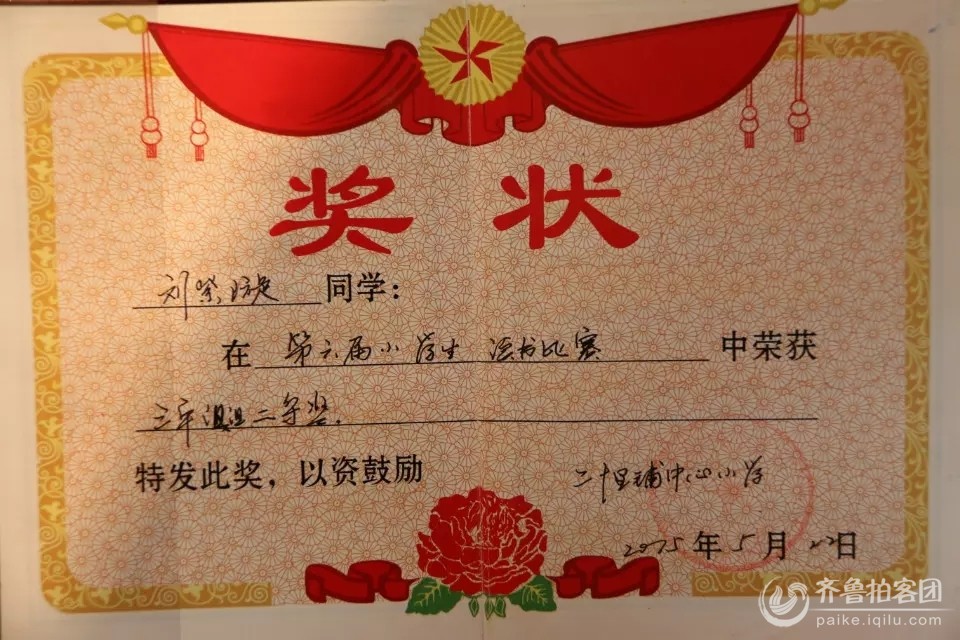 奖状
刘紫璇 同学:
在 第六届小学生 读书比赛 中荣获
三年组 二等奖.
特发此奖，以资鼓励
二十里铺中心小学
2015年5月22日
齐鲁拍客团
paike.iqilu.com